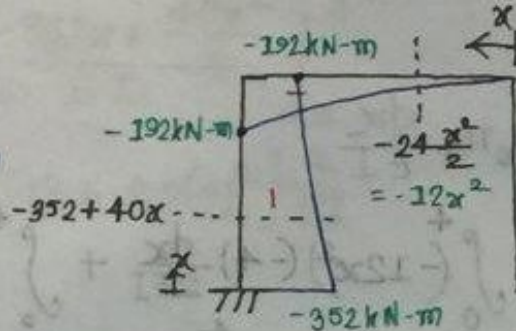 x
-192kN-m
-192kN-m
-24 x²/2
= -12x²
-352+40x
1
x
-352kN-m